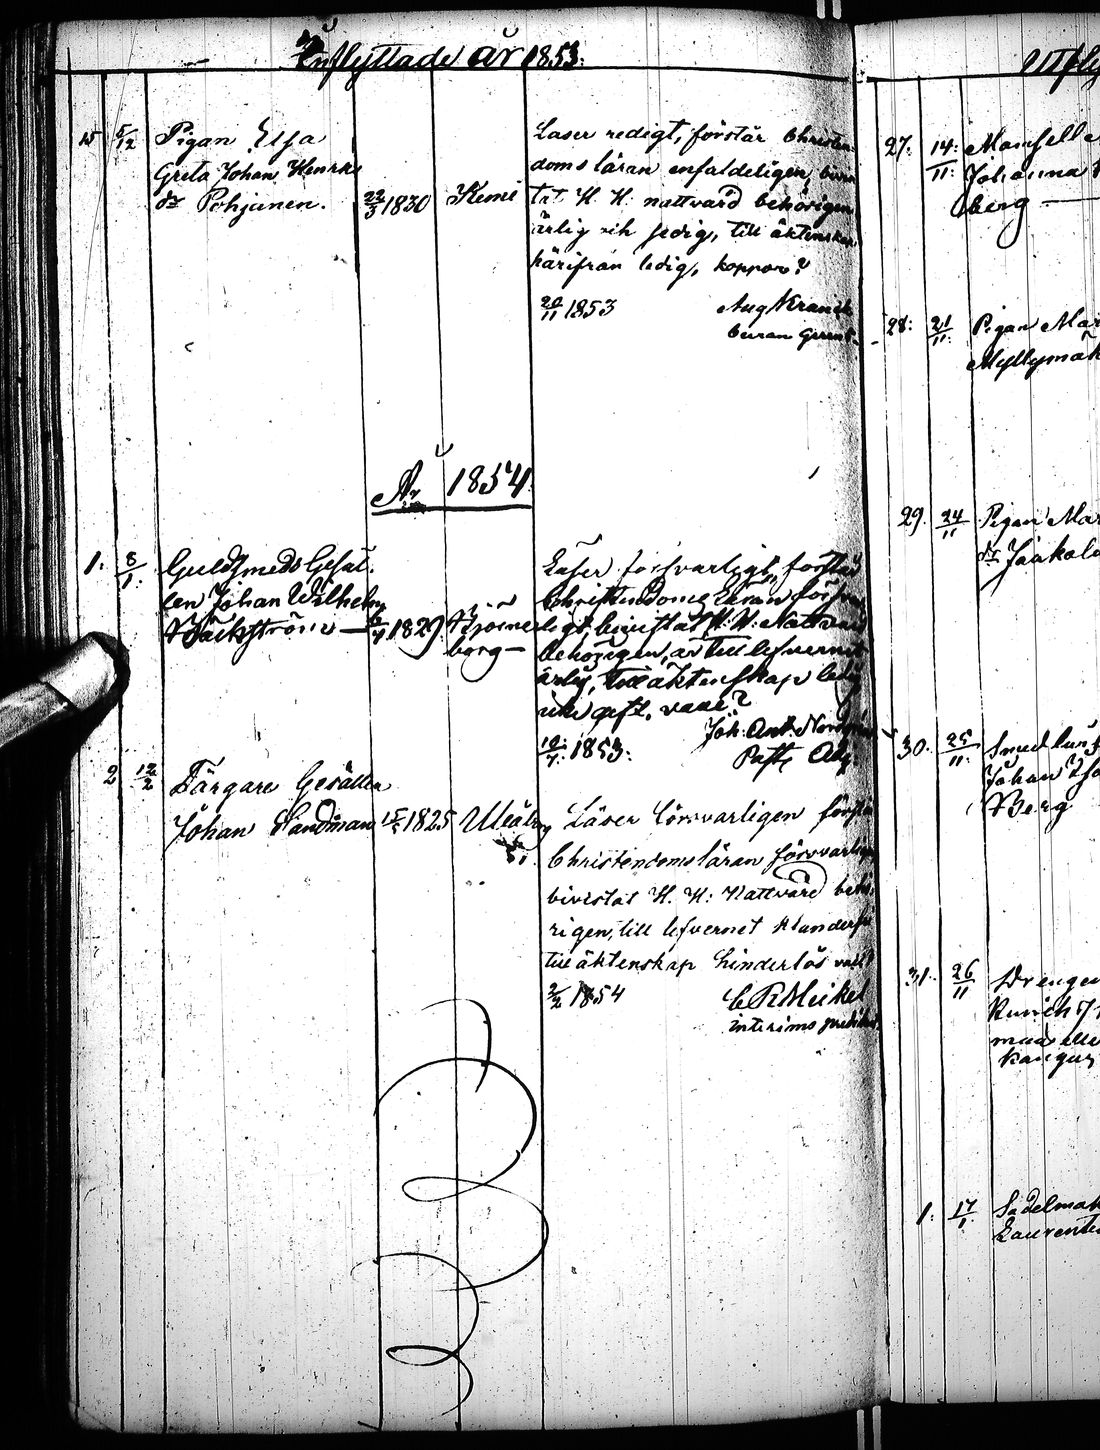 Inflyttade år 1853.
15 5/12 Pigan Elsa
Greta Johan Henriks
dr Pohjanen. 22/3 1830 Kemi
Läser redigt, förstår Christen
doms läran enfaldeligen, bivis
tat H. H. nattvard behörigen
ärlig och sedig, till äktenskap
härifrån ledig, koppor?
20/11 1853 Aug Kranck
År 1854.
1. 8/1. Guldsmeds Gesäl.
len Johan Wilhelm
Bäckström — 6/4 1829 Björne
borg —
Läser försvarligt, förstår
Christendoms Läran försvar
ligt, bivistat H. H. Nattvard
behörigen, är till lefvernet
ärlig, till äktenskap ledig
icke gift, vacc.?
1853. Joh: Ant: Nord
Past. Adj.
2 12/2 Färgare Gesällen
Johan Sandman 1825 Uleåborg
Läser försvarligen förstår
Christendomsläran försvarligen
bivistat H. H: Nattvard behö
rigen, till lefvernet klanderfri
till äktenskap hinderlös vacc?
2/2 1854 C R Meikel
interims predik
Utfly
27: 14:/11: Mamsell
Johanna
berg —
28: 21/11: Pigan Mar
Myllymäk
29. 24/11 Pigan Mar
dr Jaakola
30: 25/11: Smed
Johan
Berg
31. 26/11 Drengen
1: 17/1. Sadelmak
Laurent